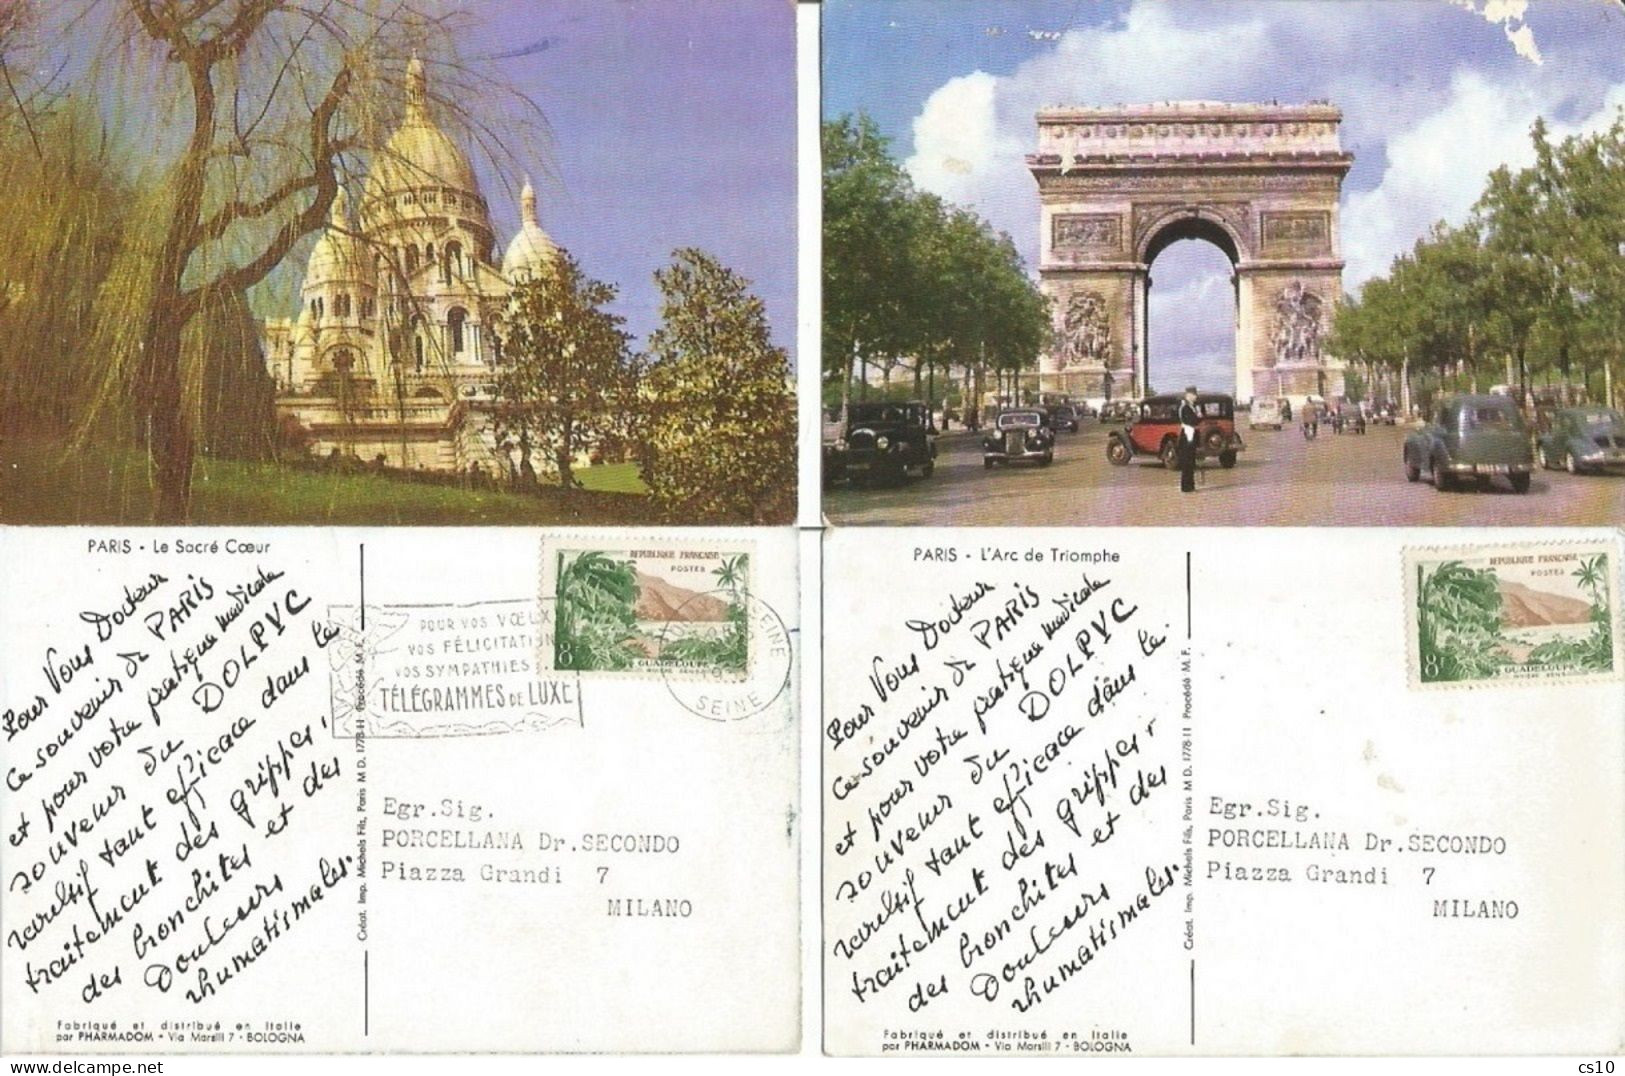 PARIS - Le Sacré Cœur
Pour Vous Docteur
ce souvenir de PARIS
et pour votre pratique médicale
souvenez du DOLPYC
revulsif tant efficace dans le
traitement des grippes,
des bronchites et des
Douleurs
rhumatismales.
Fabriqué et distribué en Italie
par PHARMADOM - Via Marsili 7 - BOLOGNA
Créat. Imp. Michels Fils, Paris M D. 1778-11 Procédé M. F.
POUR VOS VŒUX
VOS FÉLICITATION
VOS SYMPATHIES
TÉLÉGRAMMES DE LUXE
REPUBLIQUE FRANÇAISE
POSTES
8F
GUADELOUPE
RIVIÈRE SENS
SEINE
SEINE
Egr.Sig.
PORCELLANA Dr.SECONDO
Piazza Grandi 7
MILANO
PARIS - L'Arc de Triomphe
Pour Vous Docteur
ce souvenir de PARIS
et pour votre pratique médicale
souvenez du DOLPYC
revulsif tant efficace dans le
traitement des grippes,
des bronchites et des
Douleurs
rhumatismales.
Fabriqué et distribué en Italie
par PHARMADOM - Via Marsili 7 - BOLOGNA
Créat. Imp. Michels Fils, Paris M D. 1778-11 Procédé M. F.
REPUBLIQUE FRANÇAISE
POSTES
8F
GUADELOUPE
RIVIÈRE SENS
Egr.Sig.
PORCELLANA Dr.SECONDO
Piazza Grandi 7
MILANO
cs10